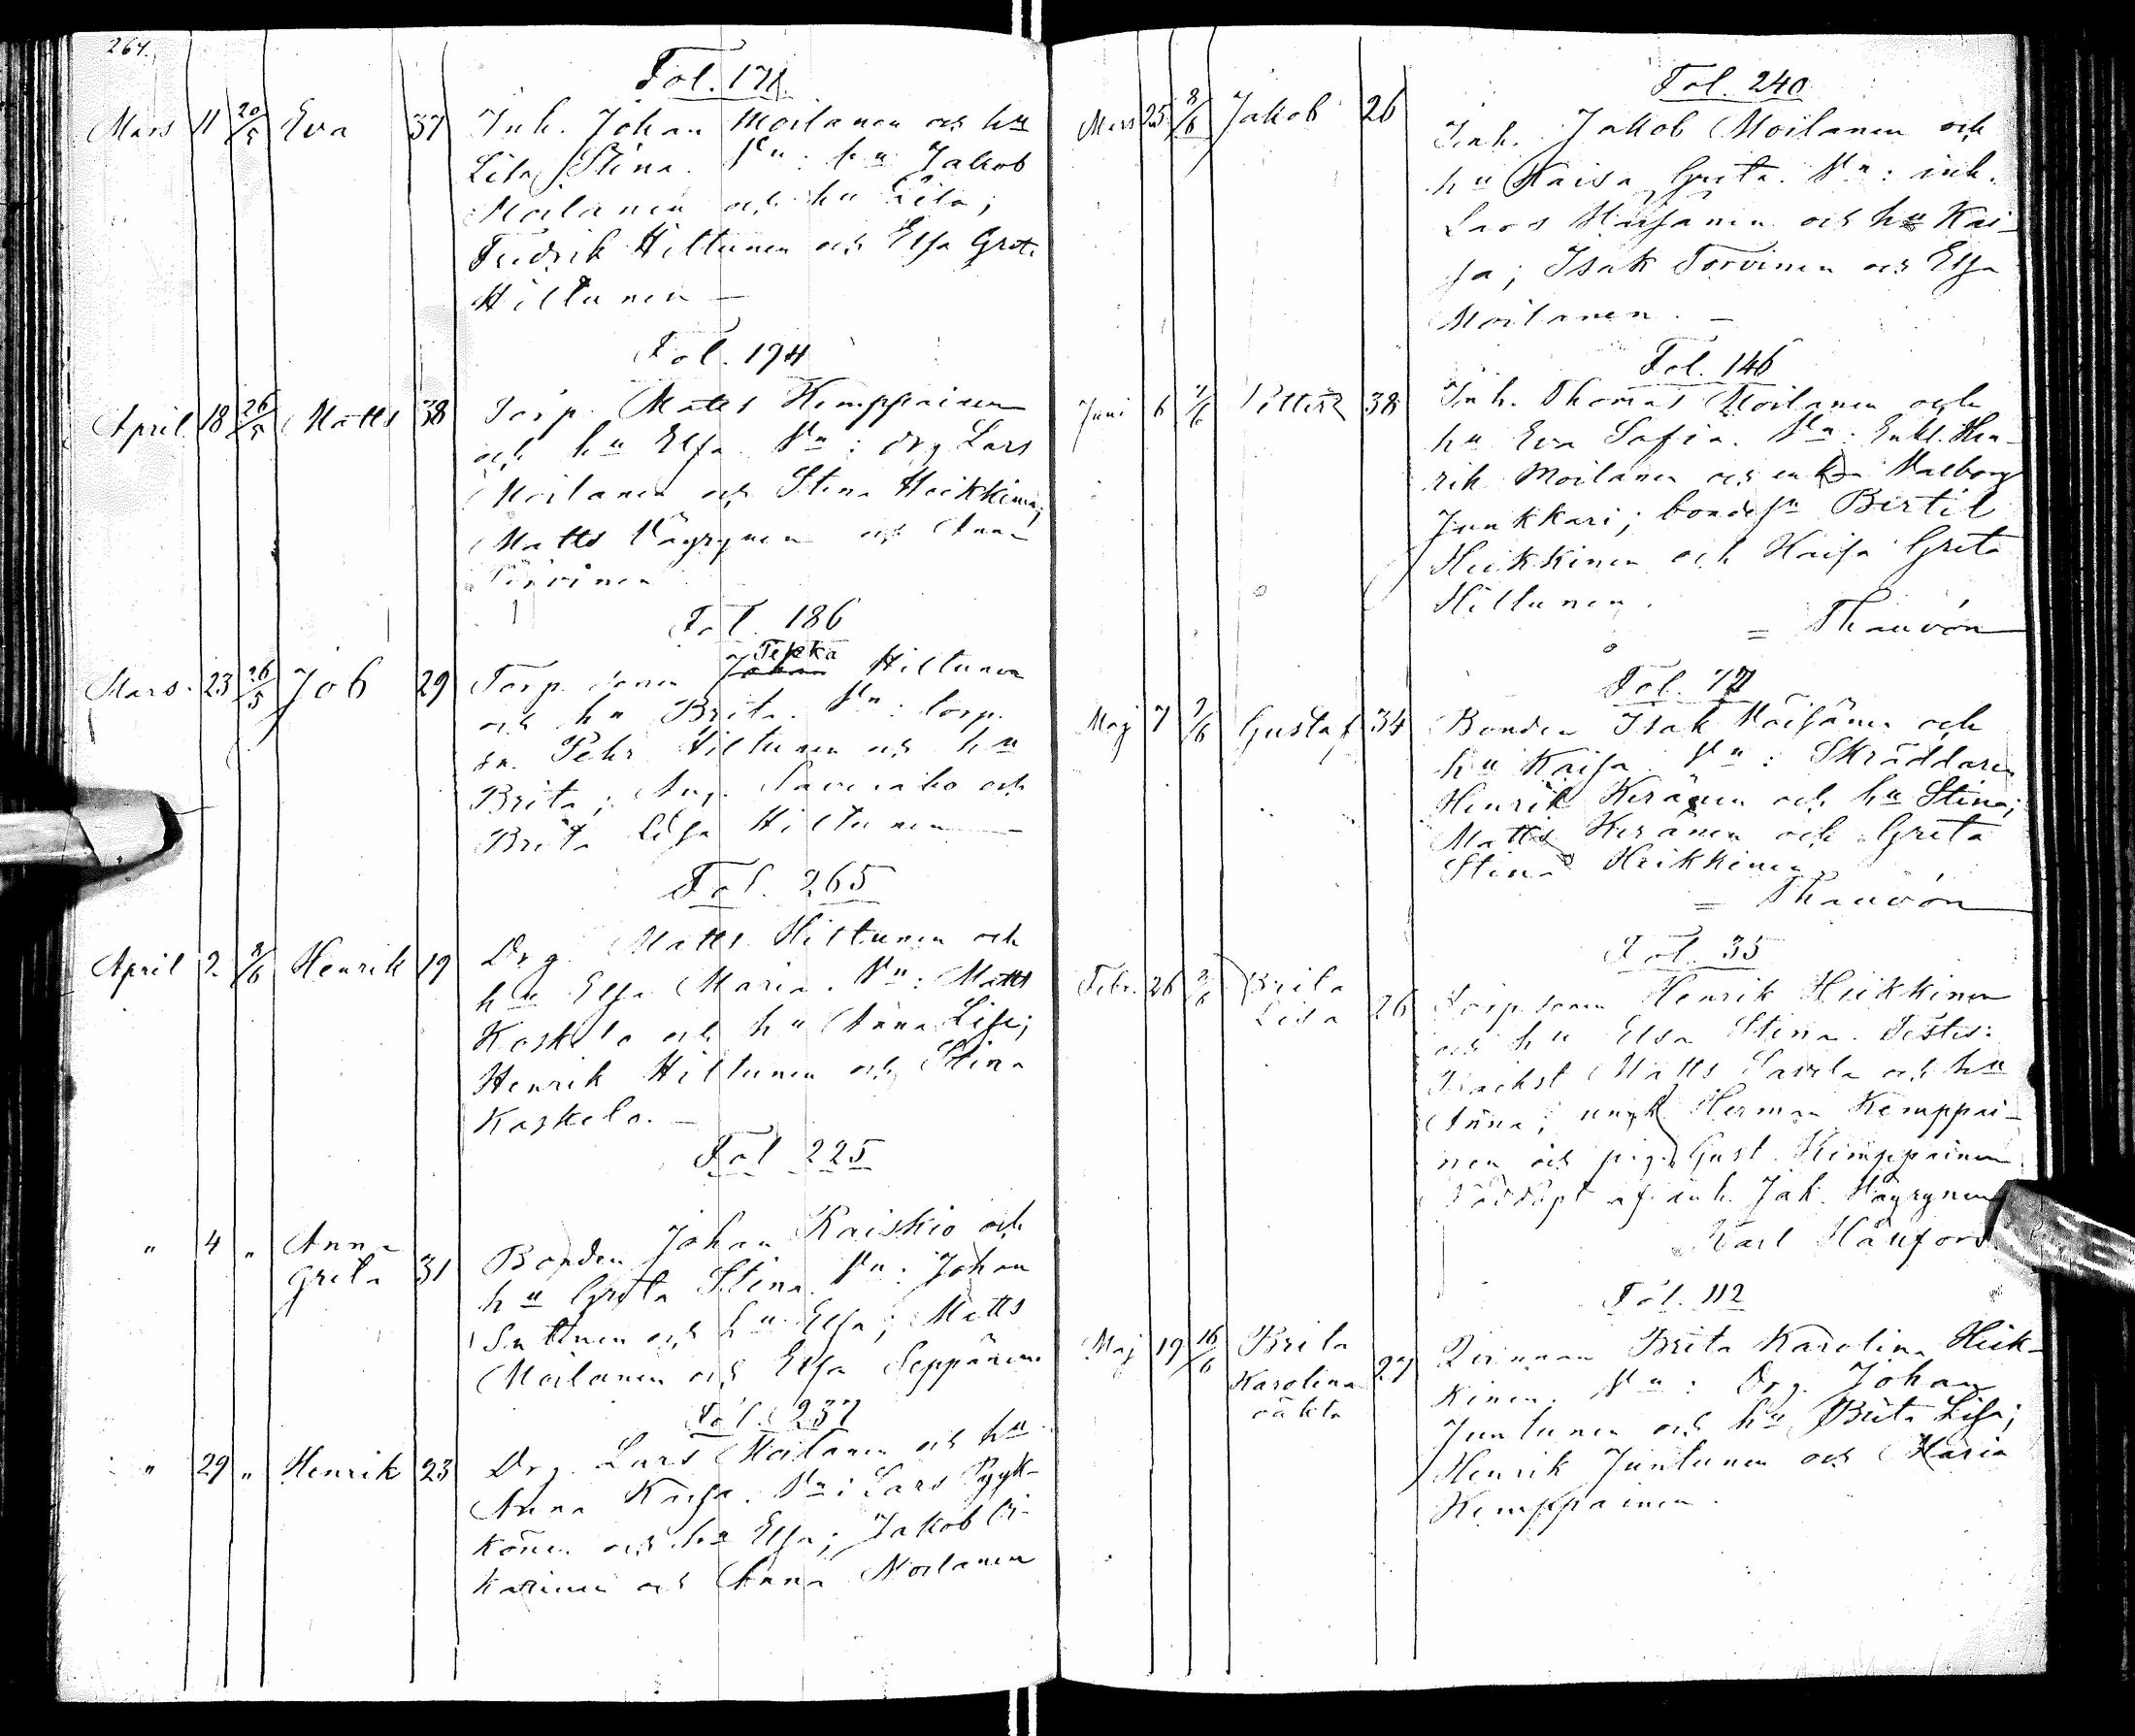 264.
Fol. 171
Mars 11 20/5 Eva 37 Inh. Johan Moilanen och hu
Lisa Stina. Vn: hu Jakob
Moilanen och hu Lisa;
Fredrik Hiltunen och Elsa Greta
Hiltunen —
Fol. 194
April 18 26/5 Matts 38 Torp. Matts Kemppainen
och hu Elsa Vn: drg Lars
Moilanen och Stina Heikkinen;
Matts Väyrynen och Anna
Fol. 186
Mars 23 26/5 Job 29 Torp. Johan Hiltunen
och hu Brita. Vn: torp.
sn. Pehr Hiltunen och hu
Brita; och
Brita Lisa Hiltunen —
Fol. 265
April 2 8/6 Henrik 19 Drg. Matts Hiltunen och
hu Elsa Maria. Vn: Matts
Koskelo och hu Anna Lisa;
Henrik Hiltunen och Stina
Koskelo. —
Fol 225
" 4 " Anna
Greta 31 Bonden Johan Kaiskio och
hu Greta Stina Vn: Johan
och hu Elsa; Matts
Moilanen och Elsa Seppänen
Fol. 237
" 29 " Henrik 23 Drg. Lars Moilanen och hu
Anna Kaisa. Vn: Lars Pyyk-
könen och hu Elsa; Jakob Oi-
karinen och Anna Moilanen
Fol. 240
Mars 25 8/6 Jakob 26 Inh. Jakob Moilanen och
hu Kaisa Greta. Vn: inh.
Lars och hu Kai-
sa; Isak Torvinen och Elsa
Moilanen. —
Fol. 146
Juni 6 7/6 Petter 38 Inh. Thomas Moilanen och
hu Eva Sofia. Vn: Enkl. Hen-
rik Moilanen och enkan Valborg
Junkkari; bondesn Bertil
Heikkinen och Kaisa Greta
Hiltunen.
= Thauvón
Fol. 17
Maj 7 7/6 Gustaf 34 Bonden Isak och
hu Kaisa. Vn: Skräddaren
Henrik Keränen och hu Stina;
Matts Keränen och Greta
Stina Heikkinen
= Thauvón
Fol. 35
Febr. 26 2/6 Brita
Lisa 26 Torp.sonen Henrik Heikkinen
och hu Elsa Stina. Testes:
Matts Savela och hu
Anna; ungk Herman Kemppai-
nen och pig. Gust. Kemppainen.
Nöddöpt af inh. Jak. Väyrynen
Karl Hänford
Fol. 112
Maj 19 16/6 Brita
Karolina
oäkta 27 Qvinnan Brita Karolina Heik-
kinen. Vn: Drg. Johan
Juntunen och hu Brita Lisa;
Henrik Juntunen och Maria
Kemppainen.